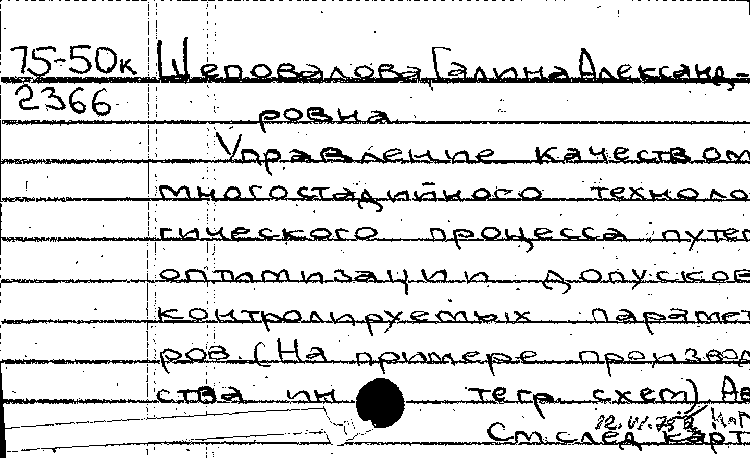 75-50к Шеповалова, Галина Александ-
2366
ровна
Управление качеством
многостадийного техноло
гического процесса путем
оптимизации допусков
контролируемых парамет
ров. (На примере производ
ства ин тегр. схем) Ав
12.VI.75
См. след карт